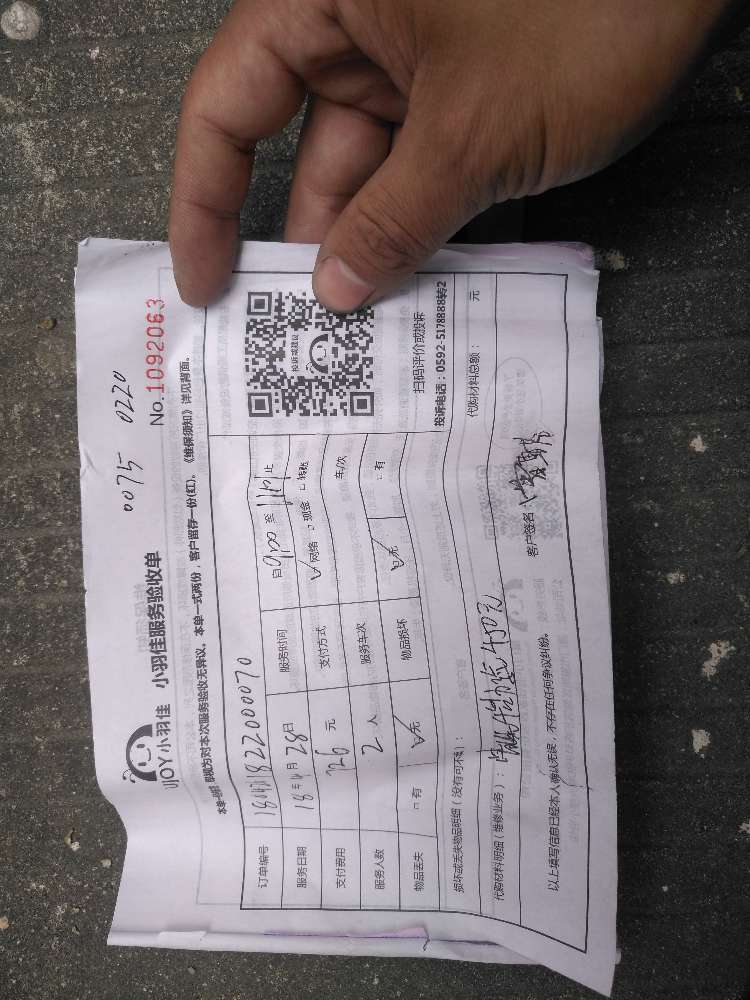 0075 0220
IJOY小羽佳 小羽佳服务验收单 No.1092063
视为对本次服务验收无异议。本单一式两份，客户留存一份(红)。《维保须知》详见背面。
订单编号 18041822000070
服务日期 18年4月28日 服务时间 自9:00至11:01止
支付费用 326元 支付方式 ☑网络 □现金 □转账
服务人数 2人 服务车次 车/次
物品丢失 □有 ☑无 物品损坏 ☑无 □有
投诉或建议
扫码评价或投诉
投诉电话：0592-5178888转2
损坏或丢失物品明细（没有可不填）：
代购材料明细（维修业务）： 450元 代购材料总额： 元
以上填写信息已经本人确认无误，不存在任何争议纠纷。 客户签名：